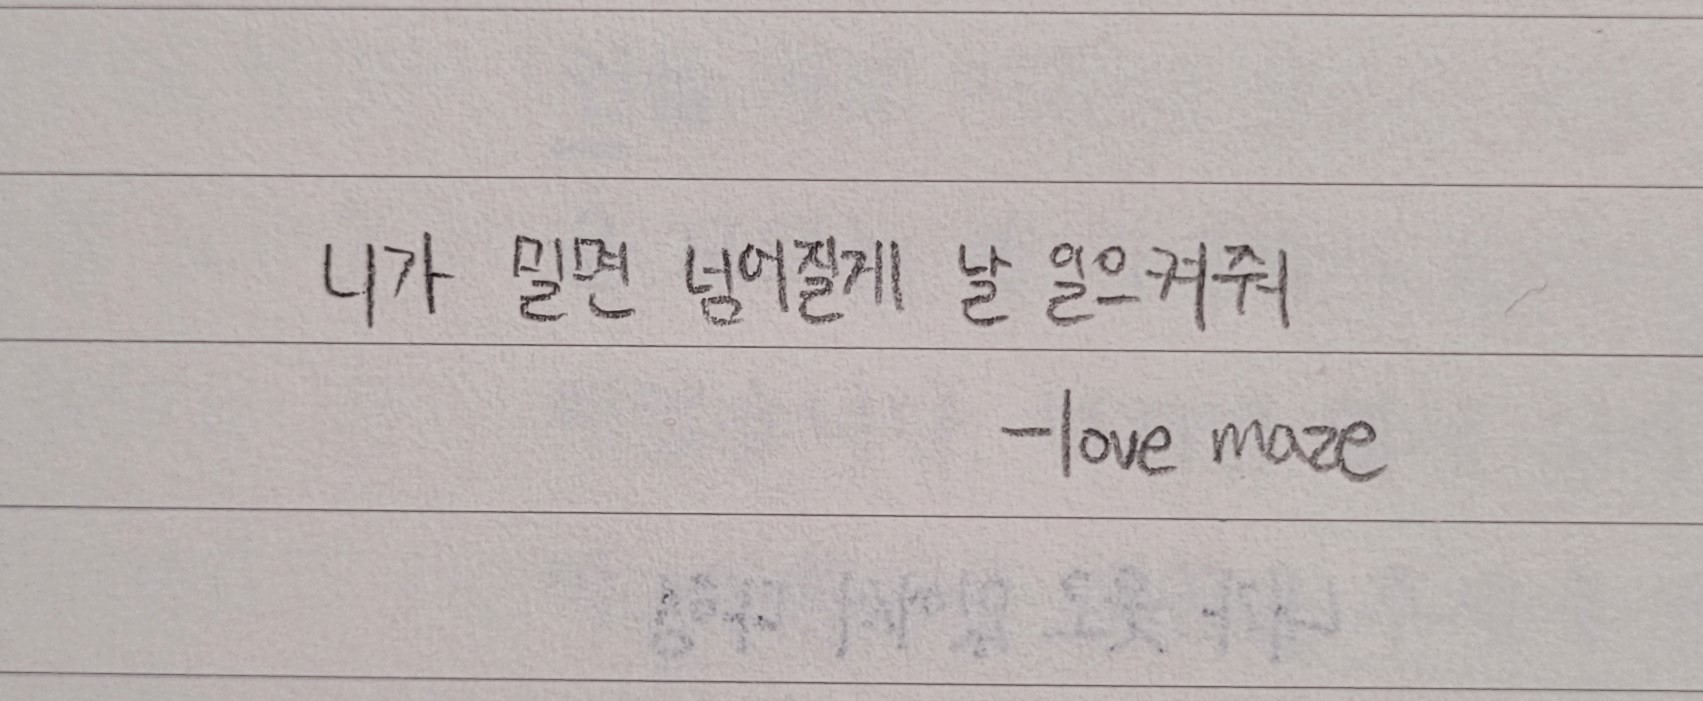 니가 밀면 넘어질게 날 일으켜줘
-love maze